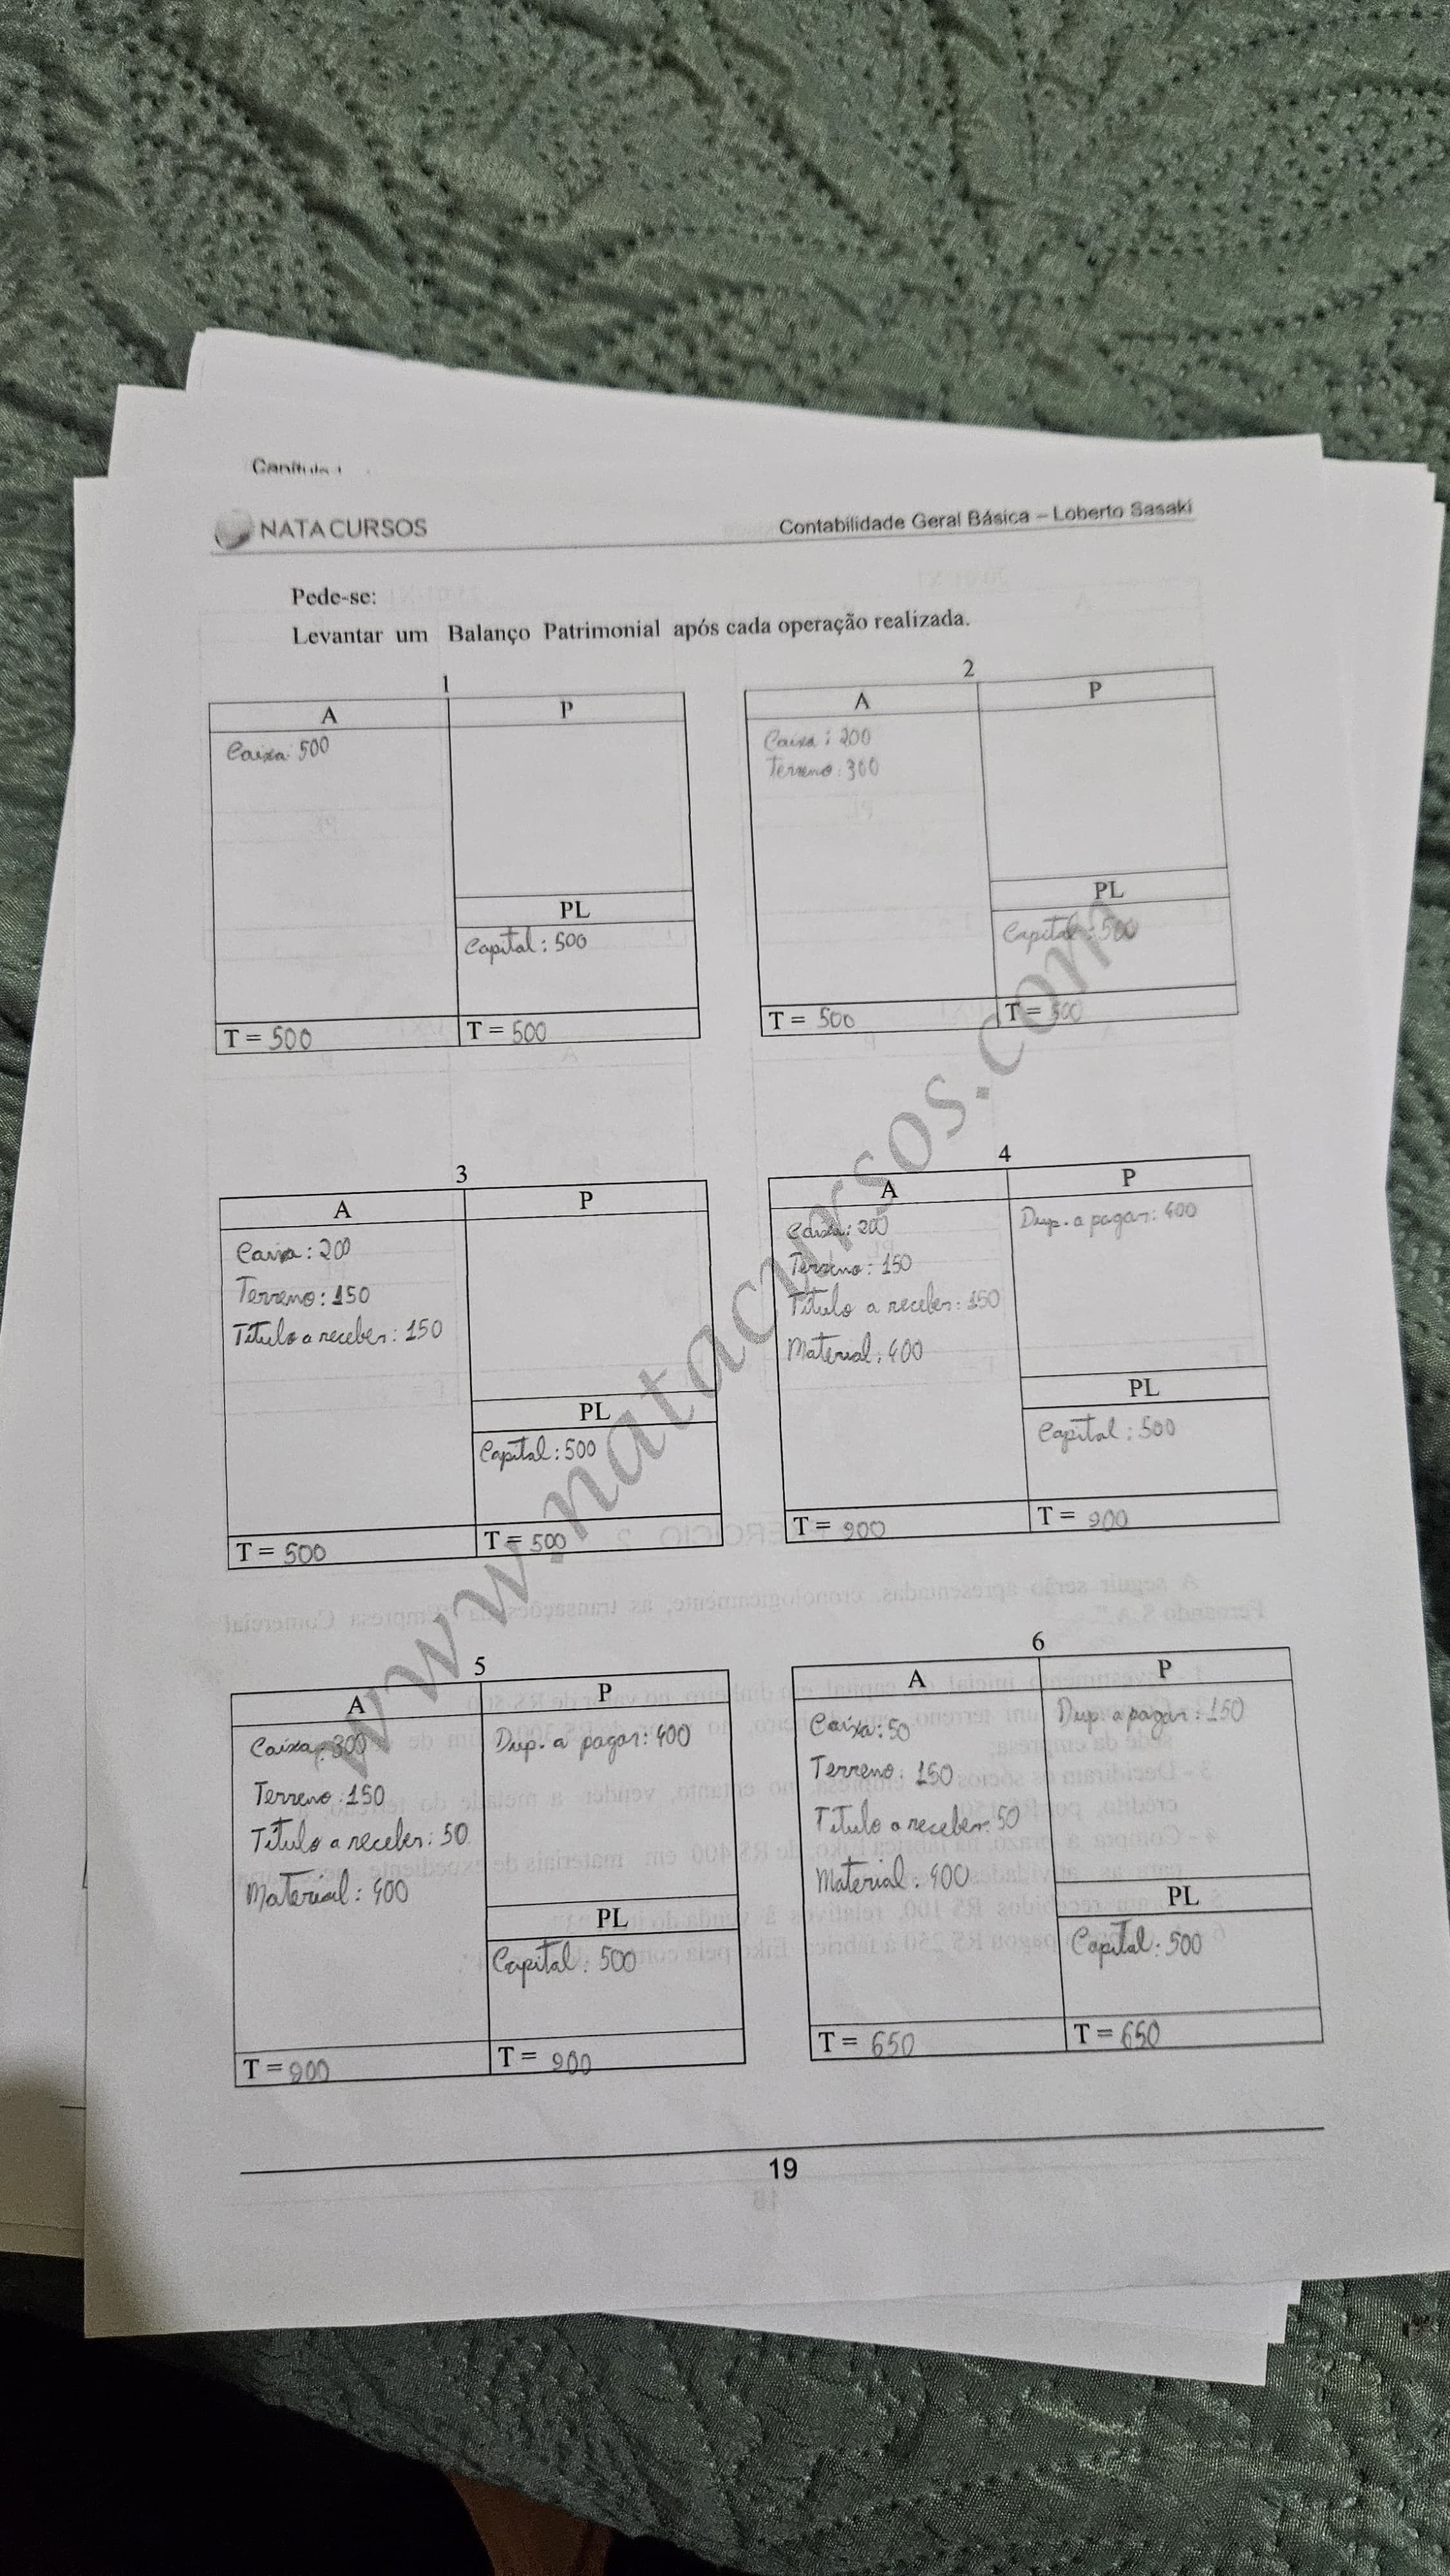 NATA CURSOS
Contabilidade Geral Básica – Loberto Sasaki
Pede-se:
Levantar um Balanço Patrimonial após cada operação realizada.
1
A P
Caixa: 500
PL
Capital: 500
T = 500 T = 500
2
A P
Caixa: 200
Terreno: 300
PL
Capital: 500
T = 500 T = 500
3
A P
Caixa: 200
Terreno: 150
Título a receber: 150
PL
Capital: 500
T = 500 T = 500
4
A P
Caixa: 200 Dup. a pagar: 400
Terreno: 150
Título a receber: 150
Material: 400
PL
Capital: 500
T = 900 T = 900
5
A P
Caixa: 300 Dup. a pagar: 400
Terreno: 150
Título a receber: 50
Material: 400
PL
Capital: 500
T = 900 T = 900
6
A P
Caixa: 50 Dup. a pagar: 150
Terreno: 150
Título a receber: 50
Material: 400
PL
Capital: 500
T = 650 T = 650
www.natacursos.com
19